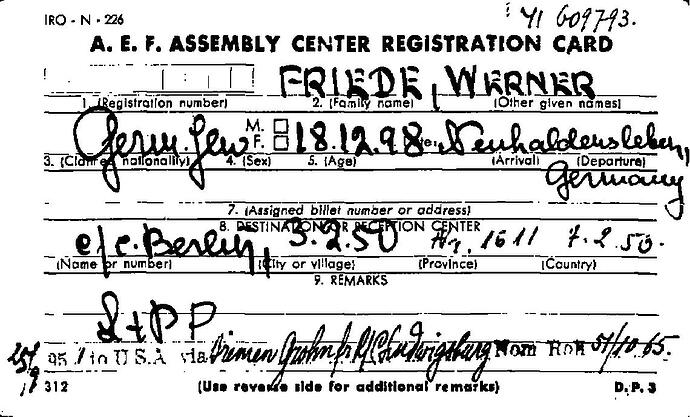 IRO - N - 226
YI 609793.
A. E. F. ASSEMBLY CENTER REGISTRATION CARD
FRIEDE, WERNER
1. (Registration number) 2. (Family name) (Other given names)
Germ. Jew M. F. 18.12.98 Neuhaldensleben,
3. (Claimed nationality) 4. (Sex) 5. (Age) (Arrival) (Departure)
Germany
7. (Assigned billet number or address)
8. DESTINATION OR RECEPTION CENTER
c/c. Berlin, 3.2.50 Nr. 1611 7.2.50.
(Name or number) (City or village) (Province) (Country)
9. REMARKS
L+PP
25/ 95 1 to U.S.A via Bremen Grohn fr. R/C Ludwigsburg Nom Roll 51/10 65.
312 (Use reverse side for additional remarks) D.P. 3